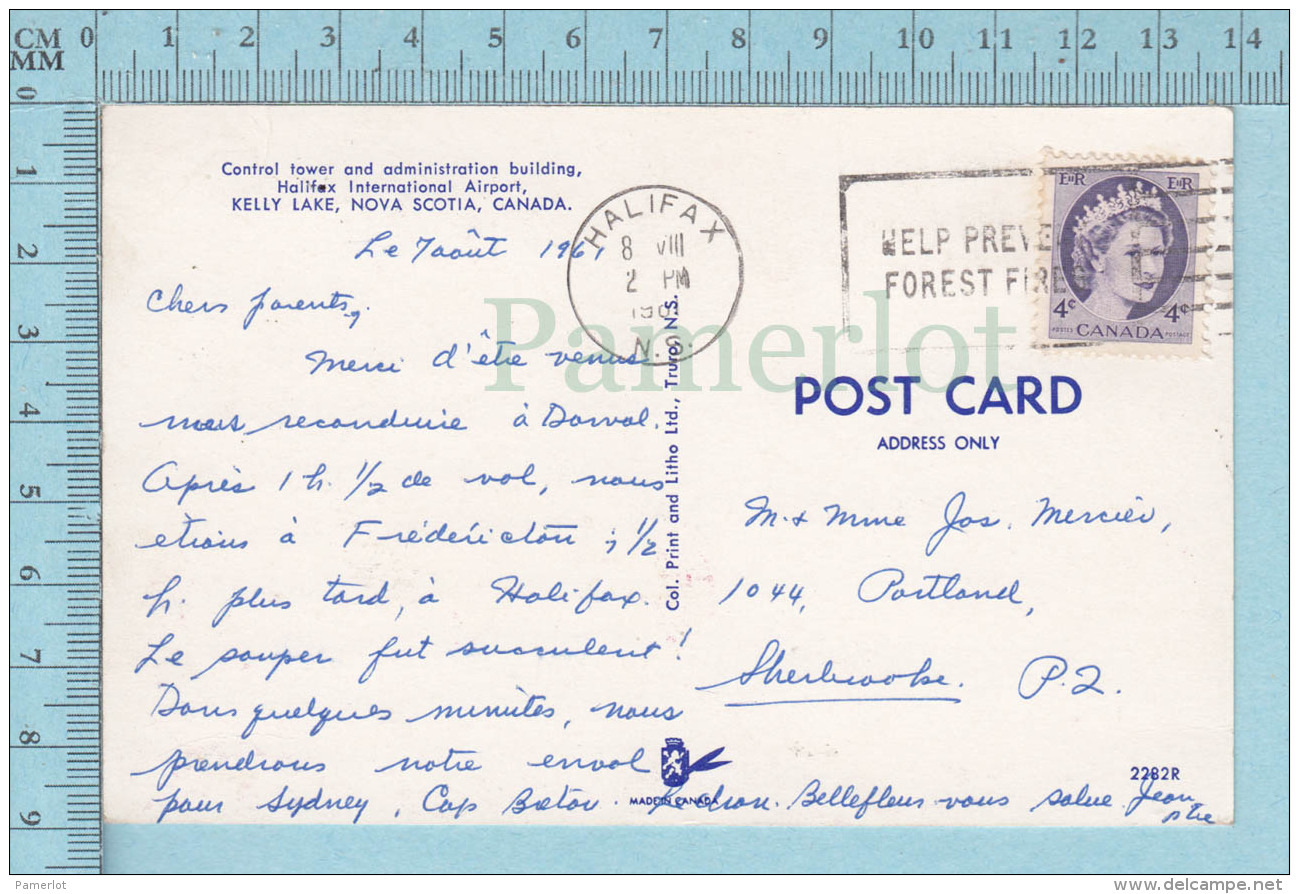 CM 0 1 2 3 4 5 6 7 8 9 10 11 12 13 14
MM
0
1
2
3
4
5
6
7
8
9
Control tower and administration building,
Halifax International Airport,
KELLY LAKE, NOVA SCOTIA, CANADA.
Le 7 août 1961
Chers parents,
Merci d'être venus
nous reconduire à Dorval.
Après 1 h. 1/2 de vol, nous
étions à Frédéricton ; 1/2
h. plus tard, à Halifax.
Le souper fut succulent!
Dans quelques minutes, nous
prendrons notre envol
pour Sydney, Cap Breton. Bellefleur vous salue. Jean
HALIFAX
8 VIII
2 PM
N.S.
Col. Print and Litho Ltd., Truro, N.S.
MADE IN CANADA
HELP PREVE
FOREST FIRE
EIIR EIIR
4¢ 4¢
POSTES CANADA POSTAGE
POST CARD
ADDRESS ONLY
M. + Mme Jos. Mercier,
1044, Portland,
Sherbrooke. P.Q.
2282R
Pamerlot
Pamerlot
www.delcampe.net